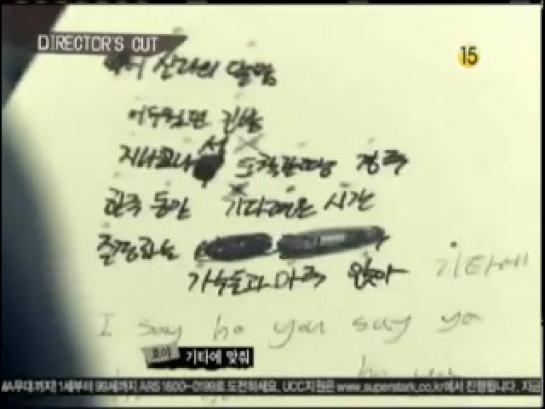 DIRECTOR'S CUT
15
신라의 달밤
어두웠던 긴밤
지나고나서 도착한 땅 경주
한주 동안 기다려온 시간
가수들과 마주 앉아 기타에
I say ho you say yo
기타에 맞춰
무대까지! 1세부터 99세까지 ARS 1600-0199로 도전하세요. UCC지원은 www.superstark.co.kr에서 진행됩니다. 지금